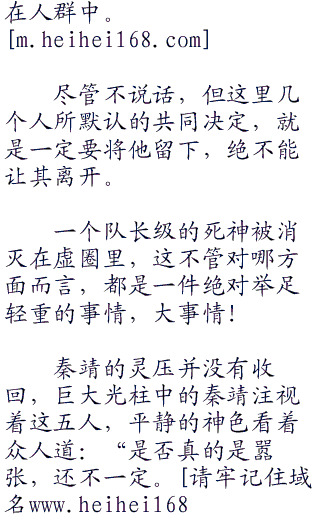 在人群中。
[m.heihei168.com]
尽管不说话，但这里几
个人所默认的共同决定，就
是一定要将他留下，绝不能
让其离开。
一个队长级的死神被消
灭在虚圈里，这不管对哪方
面而言，都是一件绝对举足
轻重的事情，大事情！
秦靖的灵压并没有收
回，巨大光柱中的秦靖注视
着这五人，平静的神色看着
众人道：“是否真的是嚣
张，还不一定。[请牢记住域
名www.heihei168